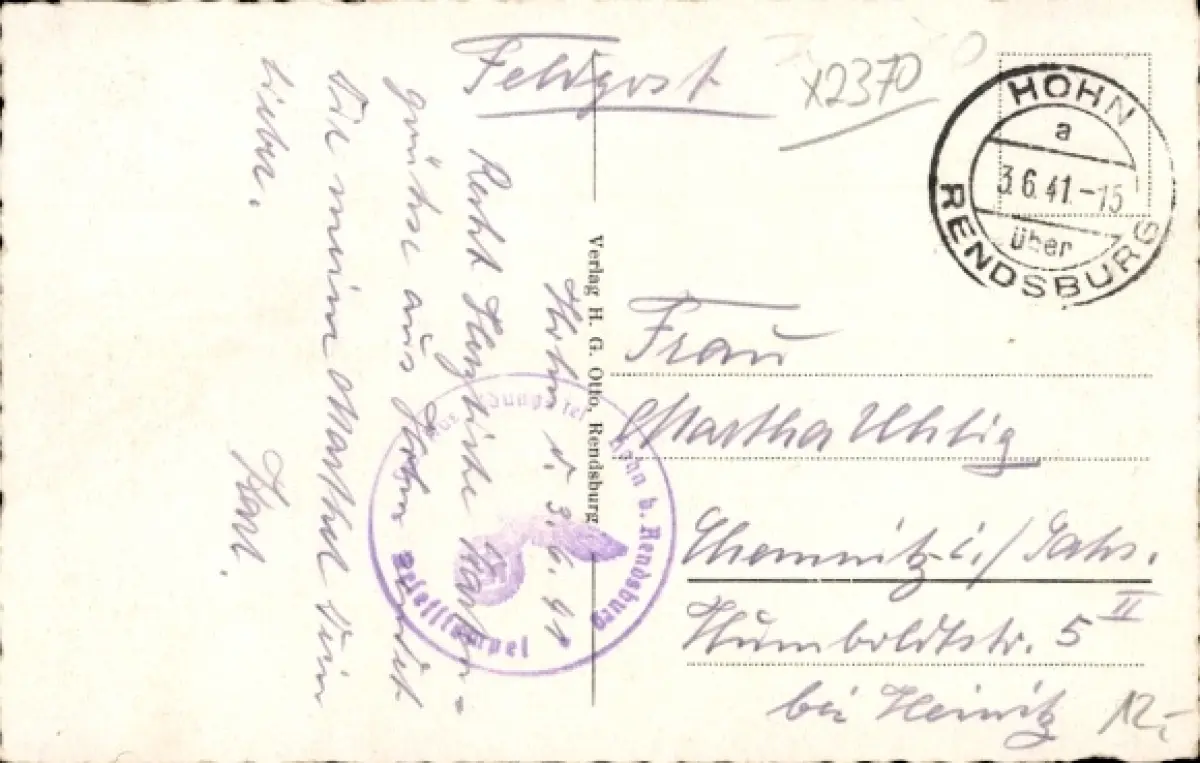 Feldpost
x2370
HOHN
a
3.6.41.-15
über
RENDSBURG
Hohn d. 3.6.41
Recht Herzliche Karten-
grüße aus Hohn sendet
Dir meine Marthel Dein
lieber.
Karl.
Verlag H. G. Otto, Rendsburg
Hohn b. Rendsburg
Briefstempel
Frau
Martha Uhlig
Chemnitz i./Sachs.
Humboldtstr. 5 II
bei Heinitz
12,-